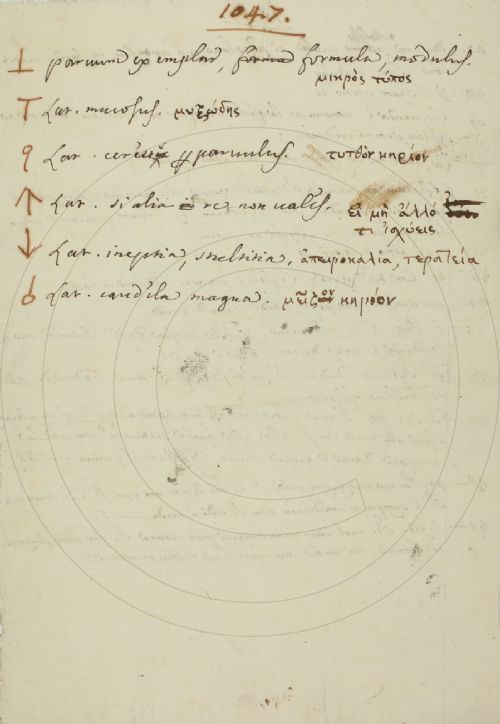 1047.
paruum exemplar, formula, modulus.
μικρὸς τύπος
Lat. mucosus. μυξώδης
Lat. cereus paruulus. τυτθὸν κηρίον
Lat. si alia re non uales. εἰ μὴ ἄλλό
τι ἰσχύεις
Lat. ineptia, stultitia, ἀπειροκαλία, τερατεία
Lat. candela magna. μεῖζον κηρίον